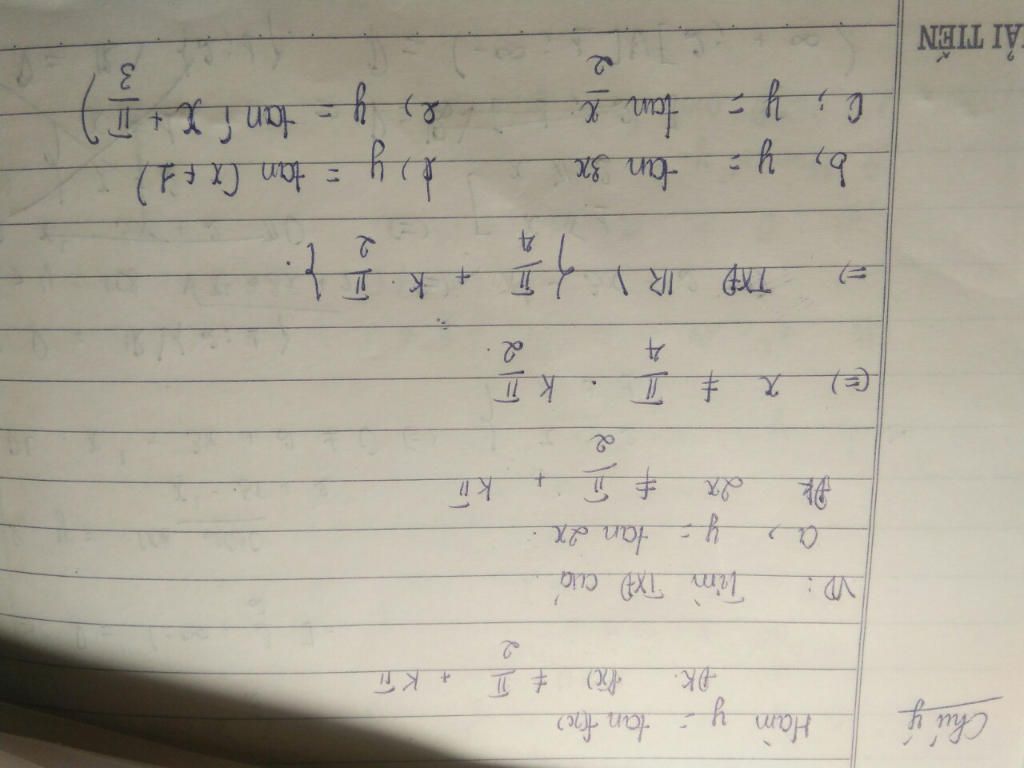 Chú ý
Hàm y = tan f(x)
ĐK. f(x) ≠ π/2 + Kπ
VD: Tìm TXĐ của
a, y = tan 2x.
ĐK 2x ≠ π/2 + Kπ
(=) x ≠ π/4 . K π/2.
=) TXĐ IR \ {π/4 + K. π/2}.
b, y = tan 3x d, y = tan (x+1)
c; y = tan x/2 e, y = tan (x + π/3)
ẢI TIẾN